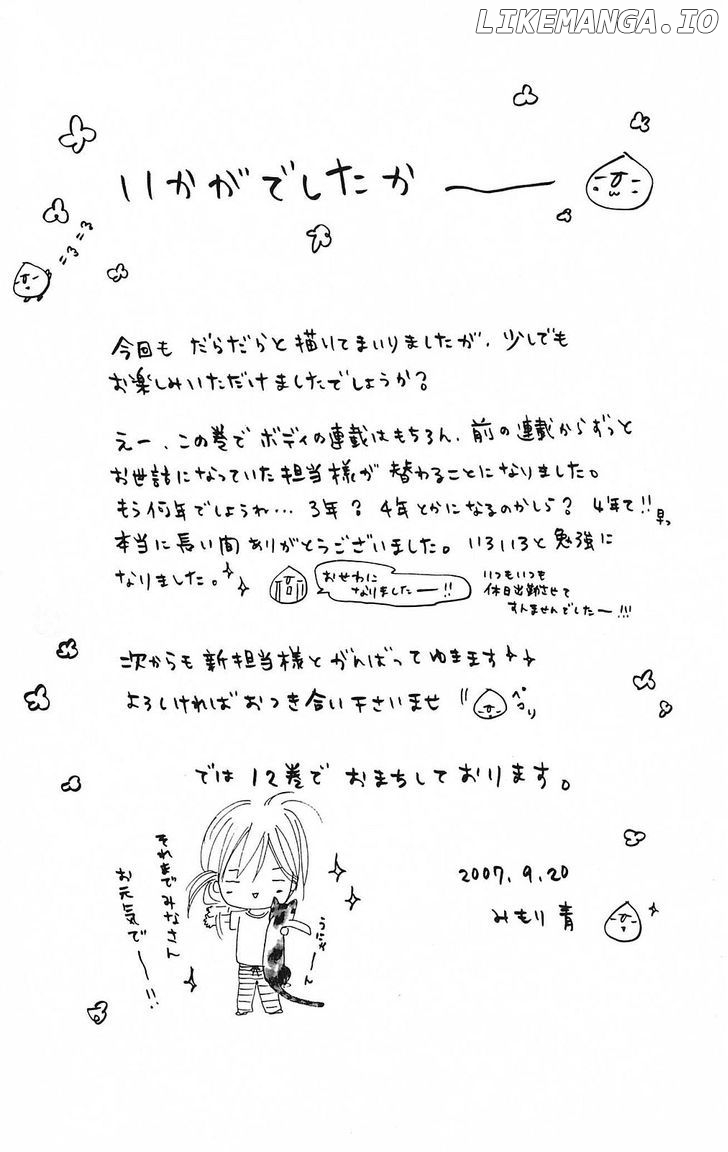 LIKEMANGA.IO
いかがでしたかー
今回も だらだらと描いてまいりましたが、少しでも
お楽しみいただけましたでしょうか?
えー、この巻で ボディの連載はもちろん、前の連載からずっと
お世話になっていた担当様が 替わることになりました。
もう何年でしょうね… 3年? 4年とかになるのかしら? 4年て!! 早っ
本当に長い間ありがとうございました。いろいろと勉強に
なりました。
おせわに
なりましたー!!
いつもいつも
休日出勤させて
すんませんでしたー!!!
次からも新担当様とがんばってゆきます
よろしければおつき合い下さいませ
ペコリ
では12巻で おまちしております。
それまでみなさん
お元気でー!!
うにゃーん
2007.9.20
みもり青